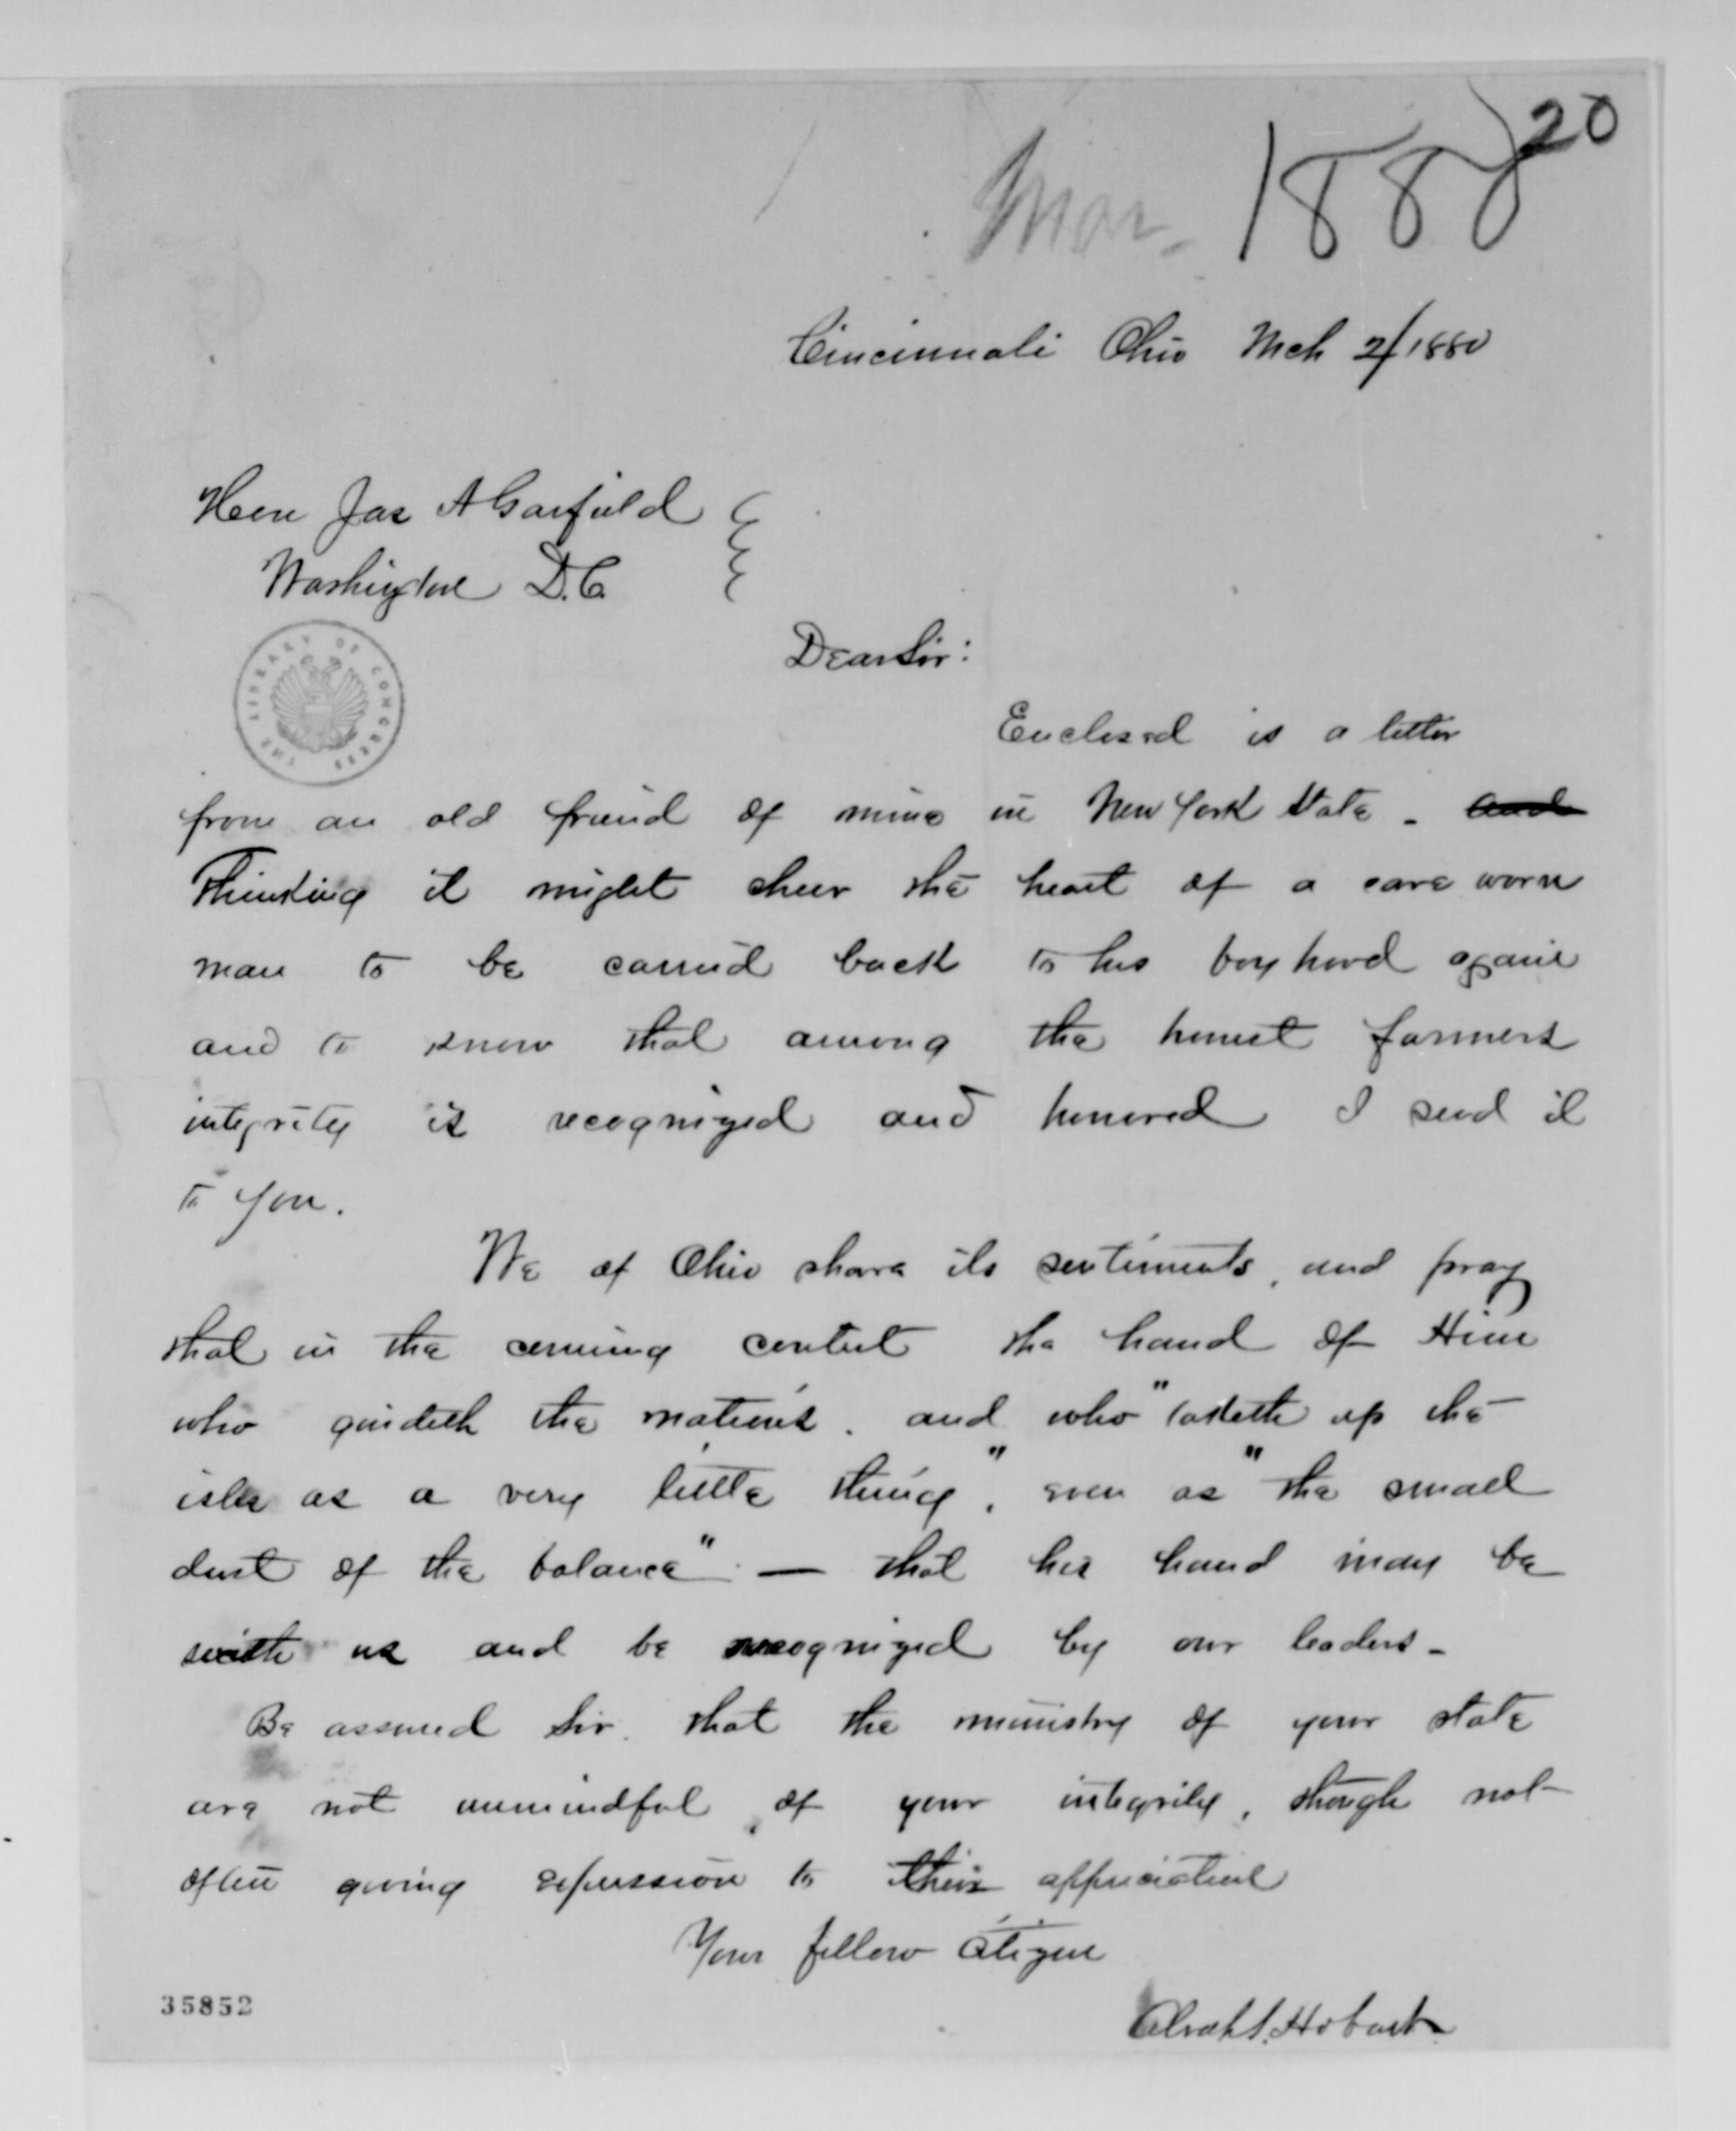 20
Mar. 1880
Cincinnati Ohio Mch 2/1880
Hon Jas A Garfield
Washington D.C.
THE LIBRARY OF CONGRESS
Dear Sir:
Enclosed is a letter
from an old friend of mine in New York State - and
Thinking it might cheer the heart of a care worn
man to be carried back to his boyhood again
and to know that among the honest farmers
integrity is recognized and honored I send it
to you.
We of Ohio share its sentiments, and pray
that in the coming contest the hand of Him
who guideth the nations. and who "taketh up the
isles as a very little thing", even as "the small
dust of the balance" - that his hand may be
with us and be recognized by our leaders -
Be assured Sir. that the ministry of your state
are not unmindful of your integrity, though not
often giving expression to their appreciation
Your fellow citizen
Hobart
35852